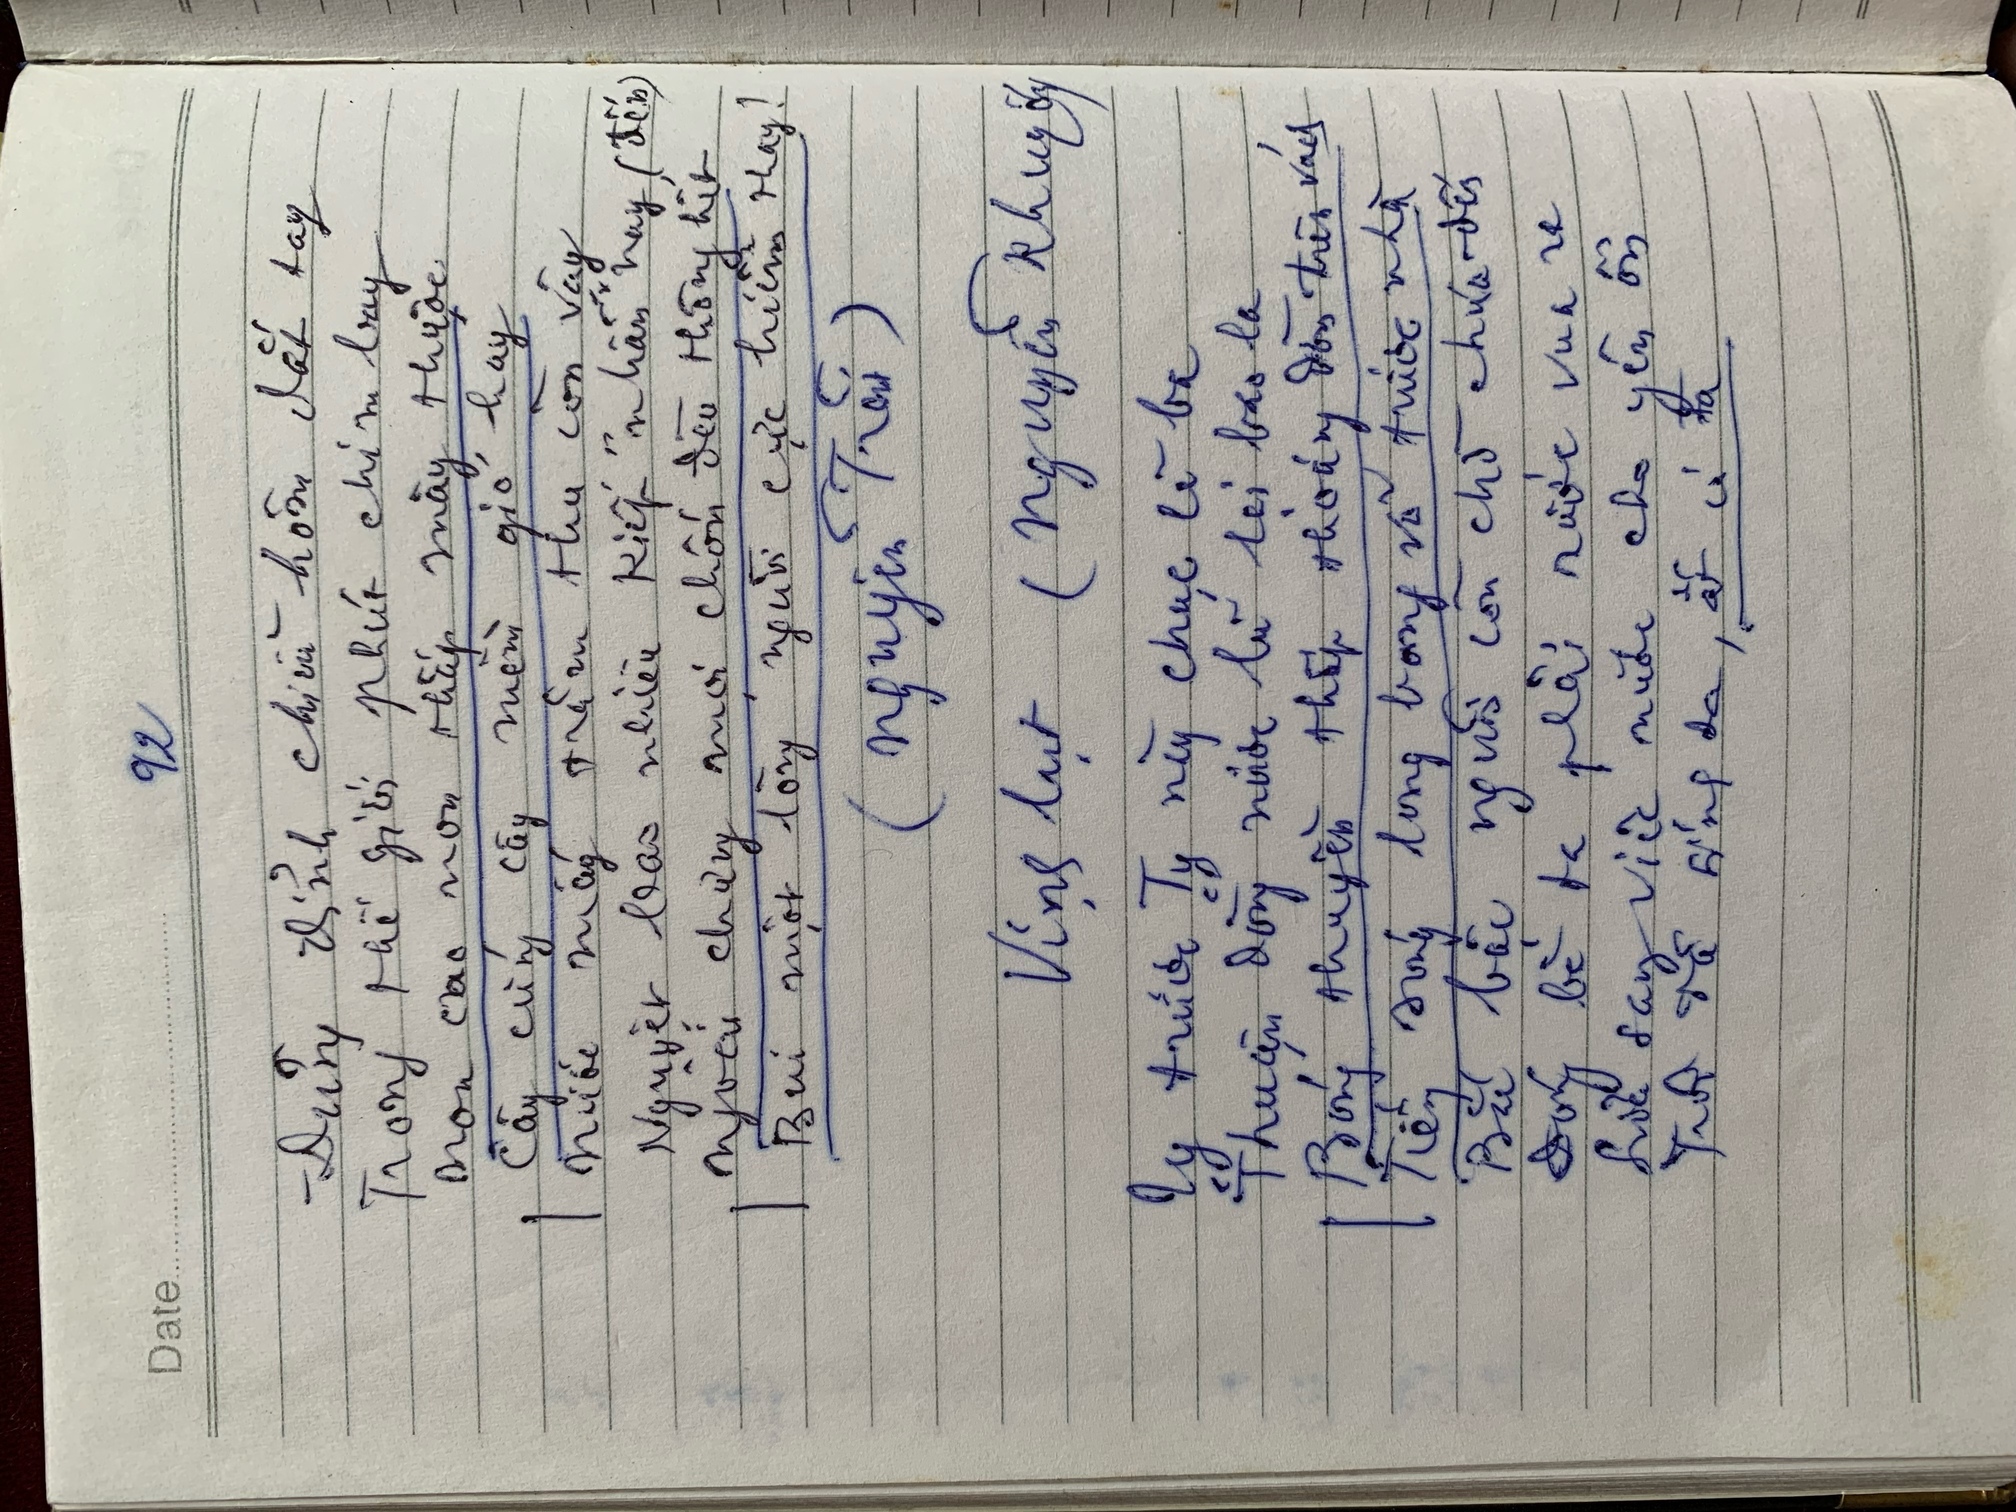 Date
92
- Dủng dỉnh chiều hôm dắt tay
Trong thế giới phút chim bay
Non cao non thấp mây thuộc
Cây cứng cây mềm gió hay
Nước mấy trăm thu còn vậy
Nguyệt bao nhiêu kiếp nhẫn nay (đến)
Ngoài chưng mọi chốn đều thông hết
Bui một lòng người cực hiểm thay!
(Nguyễn Trãi)
Vịnh lụt (Nguyễn Khuyến)
Tỵ trước Tỵ này chục lẻ ba
Thuận dòng nước lũ lại bao la
Bóng thuyền thấp thoáng dờn trên vách
Tiếng sóng long bong vỗ trước nhà
Bắc bậc người còn chờ chúa đến
Đóng bè ta phải rước vua ra
Sửa sang việc nước cho yên ổn
Trời đã sinh ta, ắt có ta